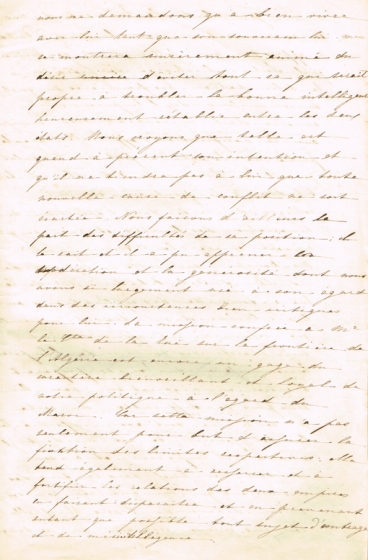 nous ne demandons qu'à bien vivre
avec lui tant que son souverain lui même
se montrera sincèrement animé du
désir d'éviter tout ce qui serait
propre à troubler la bonne intelligence
heureusement rétablie entre les deux
états. Nous croyons que telle est
quand à présent son intention et
qu'il ne tiendra pas à lui que toute
nouvelle cause de conflit ne soit
écartée. Nous faisons d'ailleurs la
part des difficultés de sa position, il
le sait et il a pu apprécier la
modération et la générosité dont nous
avons usé à son égard
dans des circonstances
pour lui. La mission confiée à Mr
le de la Rue sur la frontière de
l'Algérie est encore un gage du
caractère bienveillant et loyal de
notre politique à l'égard du
Maroc. Car cette mission n'a pas
seulement pour but d'assurer la
fixation des limites respectives, elle
tend également à resserrer et à
fortifier les relations des deux empires
en faisant disparaître et en prévenant
autant que possible tout sujet d'ombrage
et de mésintelligence.